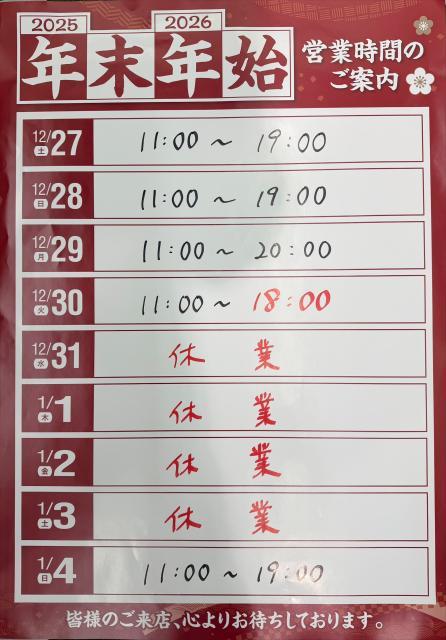 2025 2026
年末年始
営業時間の
ご案内
12/27 土 11:00 ~ 19:00
12/28 日 11:00 ~ 19:00
12/29 月 11:00 ~ 20:00
12/30 火 11:00 ~ 18:00
12/31 水 休 業
1/1 木 休 業
1/2 金 休 業
1/3 土 休 業
1/4 日 11:00 ~ 19:00
皆様のご来店、心よりお待ちしております。